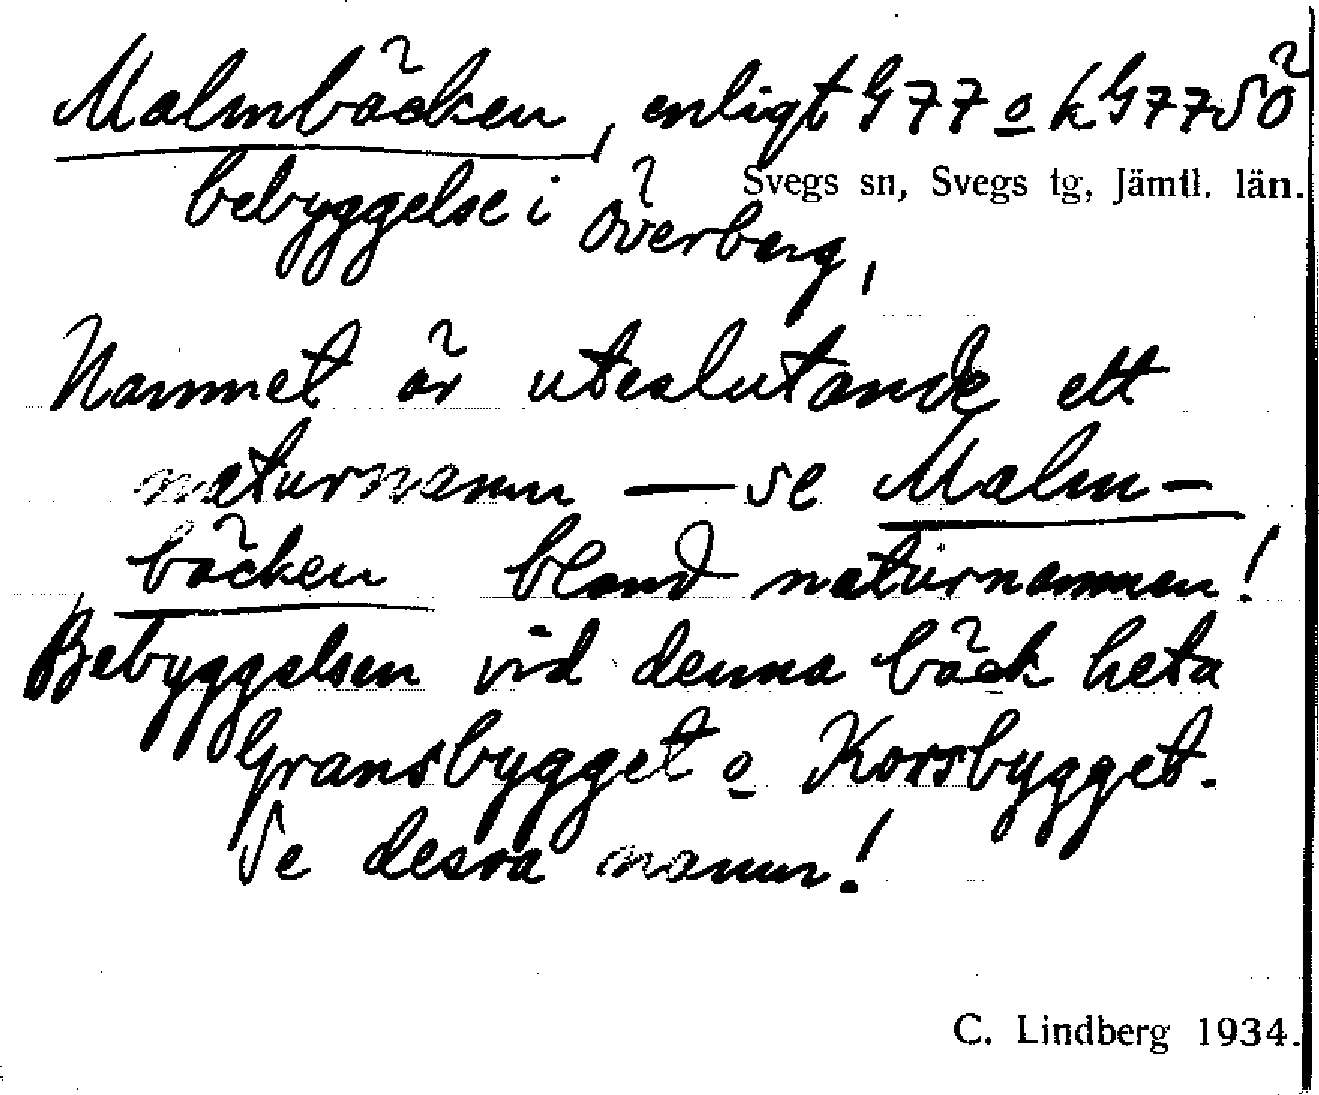 Malmbäcken, enligt G77 o kG77SÖ
Svegs sn, Svegs tg, Jämtl. län.
bebyggelse i Överberg,
Namnet är uteslutande ett
naturnamn — se Malm-
bäcken bland naturnamnen!
Bebyggelsen vid denna bäck heta
Gransbygget o Korsbygget.
Se dessa namn!
C. Lindberg 1934.